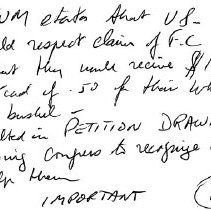 states that US-
ld respect claim of F.C
but they would recive $1
stead of .50 for their wh
bushel -
lted in PETITION DRAW
Congress to recognize
lp them
IMPORTANT